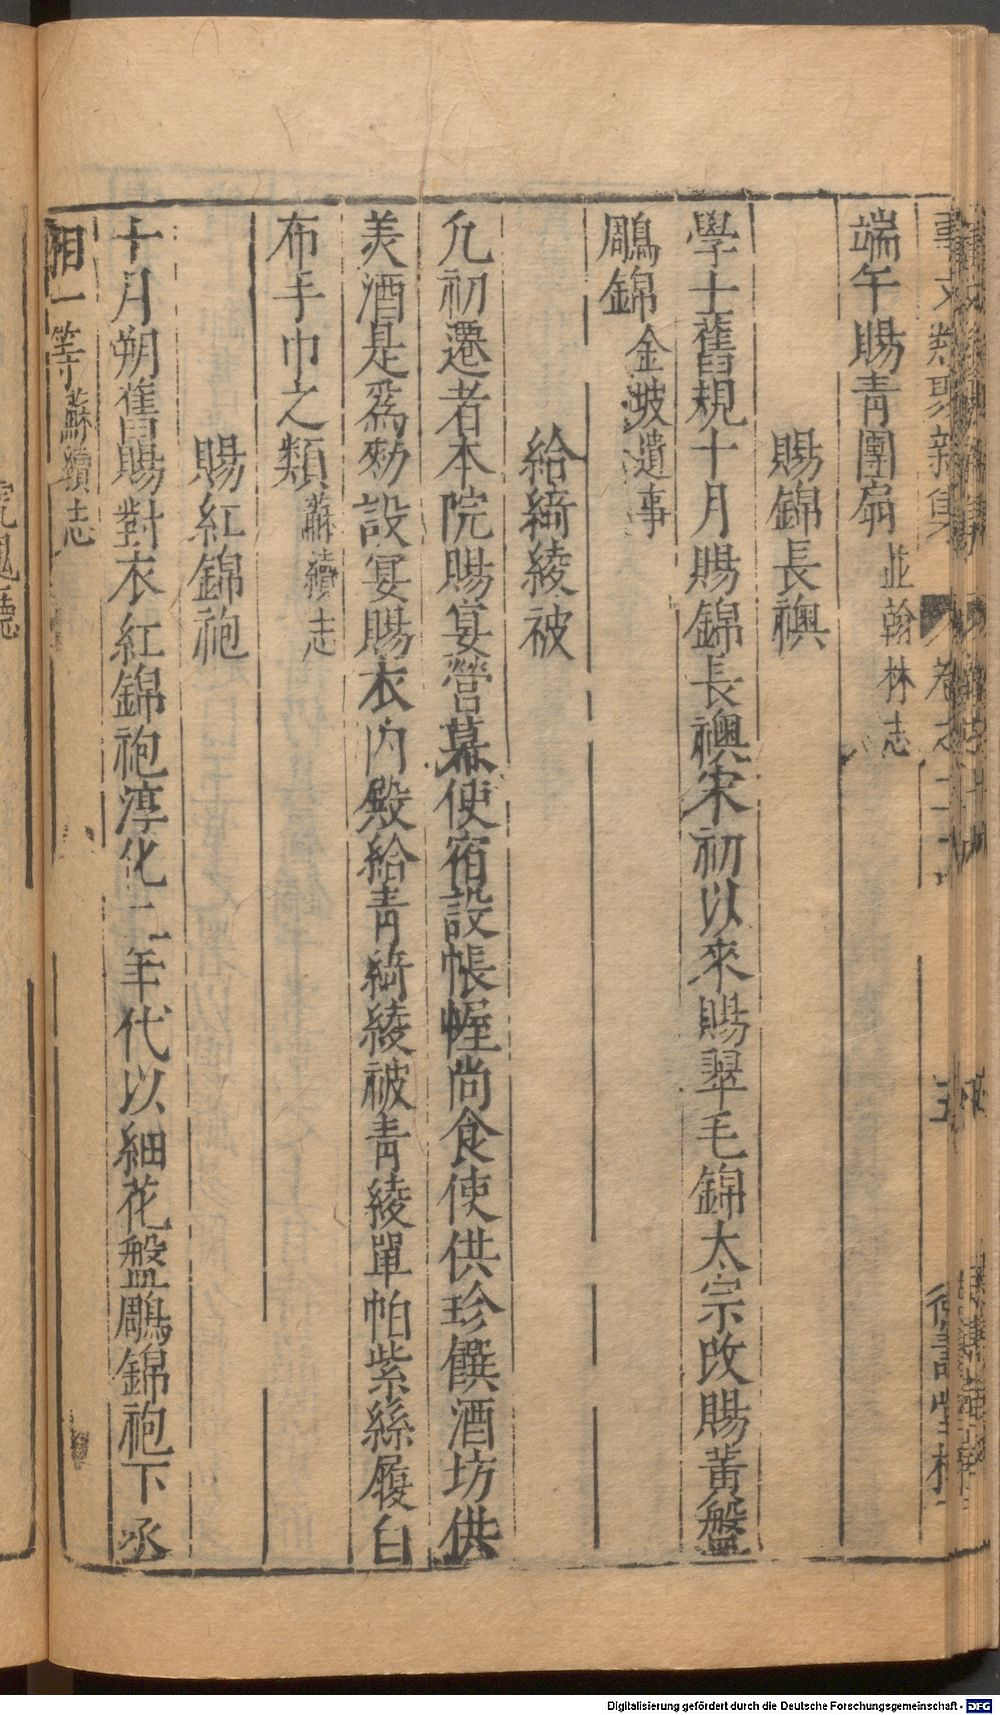 事文類聚新集 卷之二十 五 德壽堂梓
端午賜青團扇 並翰林志
賜錦長襖
學士舊規十月賜錦長襖宋初以來賜翠毛錦太宗改賜黃盤
鵰錦 金坡遺事
給綺綾被
凢初遷者本院賜宴營幕使宿設帳幄尚食使供珍饌酒坊供
羙酒是爲勑設宴賜衣內殿給青綺綾被青綾單帕紫絲履白
布手巾之類 蘇續志
賜紅錦袍
十月朔舊賜對衣紅錦袍淳化二年代以細花盤鵰錦袍下丞
相一等 蘇續志
Digitalisierung gefördert durch die Deutsche Forschungsgemeinschaft - DFG